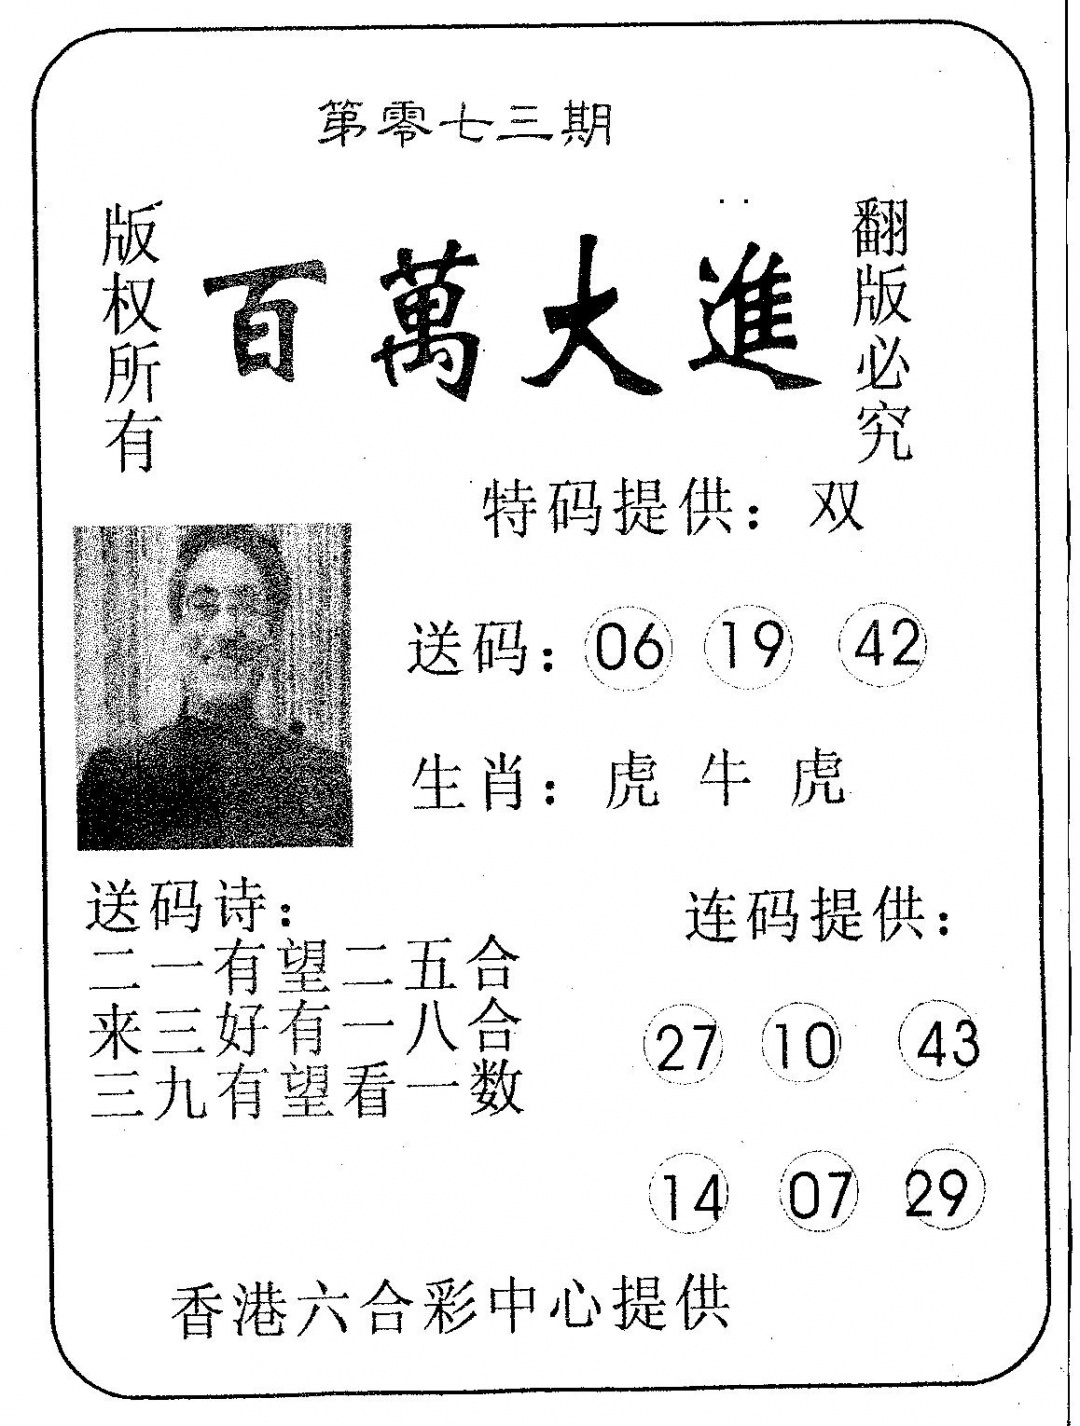 第零七三期
版权所有
百萬大進
翻版必究
特码提供：双
送码：06 19 42
生肖：虎 牛 虎
送码诗：
二一有望二五合
来三好有一八合
三九有望看一数
连码提供：
27 10 43
14 07 29
香港六合彩中心提供